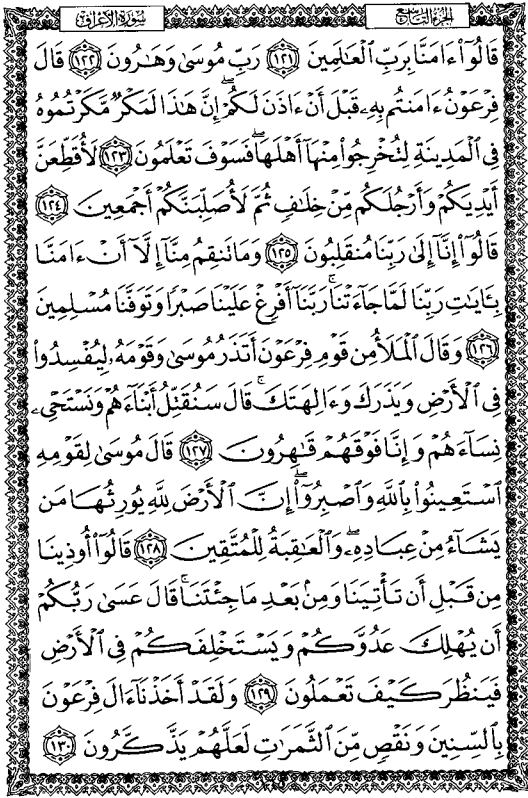 الجزء التاسع
سورة الأعراف
قَالُوٓا۟ ءَامَنَّا بِرَبِّ ٱلْعَـٰلَمِينَ ١٢١ رَبِّ مُوسَىٰ وَهَـٰرُونَ ١٢٢ قَالَ
فِرْعَوْنُ ءَامَنتُم بِهِۦ قَبْلَ أَنْ ءَاذَنَ لَكُمْ ۖ إِنَّ هَـٰذَا لَمَكْرٌ مَّكَرْتُمُوهُ
فِى ٱلْمَدِينَةِ لِتُخْرِجُوا۟ مِنْهَآ أَهْلَهَا ۖ فَسَوْفَ تَعْلَمُونَ ١٢٣ لَأُقَطِّعَنَّ
أَيْدِيَكُمْ وَأَرْجُلَكُم مِّنْ خِلَـٰفٍ ثُمَّ لَأُصَلِّبَنَّكُمْ أَجْمَعِينَ ١٢٤
قَالُوٓا۟ إِنَّآ إِلَىٰ رَبِّنَا مُنقَلِبُونَ ١٢٥ وَمَا تَنقِمُ مِنَّآ إِلَّآ أَنْ ءَامَنَّا
بِـَٔايَـٰتِ رَبِّنَا لَمَّا جَآءَتْنَا ۚ رَبَّنَآ أَفْرِغْ عَلَيْنَا صَبْرًا وَتَوَفَّنَا مُسْلِمِينَ
١٢٦ وَقَالَ ٱلْمَلَأُ مِن قَوْمِ فِرْعَوْنَ أَتَذَرُ مُوسَىٰ وَقَوْمَهُۥ لِيُفْسِدُوا۟
فِى ٱلْأَرْضِ وَيَذَرَكَ وَءَالِهَتَكَ ۚ قَالَ سَنُقَتِّلُ أَبْنَآءَهُمْ وَنَسْتَحْىِۦ
نِسَآءَهُمْ وَإِنَّا فَوْقَهُمْ قَـٰهِرُونَ ١٢٧ قَالَ مُوسَىٰ لِقَوْمِهِ
ٱسْتَعِينُوا۟ بِٱللَّهِ وَٱصْبِرُوٓا۟ ۖ إِنَّ ٱلْأَرْضَ لِلَّهِ يُورِثُهَا مَن
يَشَآءُ مِنْ عِبَادِهِۦ ۖ وَٱلْعَـٰقِبَةُ لِلْمُتَّقِينَ ١٢٨ قَالُوٓا۟ أُوذِينَا
مِن قَبْلِ أَن تَأْتِيَنَا وَمِنۢ بَعْدِ مَا جِئْتَنَا ۚ قَالَ عَسَىٰ رَبُّكُمْ
أَن يُهْلِكَ عَدُوَّكُمْ وَيَسْتَخْلِفَكُمْ فِى ٱلْأَرْضِ
فَيَنظُرَ كَيْفَ تَعْمَلُونَ ١٢٩ وَلَقَدْ أَخَذْنَآ ءَالَ فِرْعَوْنَ
بِٱلسِّنِينَ وَنَقْصٍ مِّنَ ٱلثَّمَرَٰتِ لَعَلَّهُمْ يَذَّكَّرُونَ ١٣٠